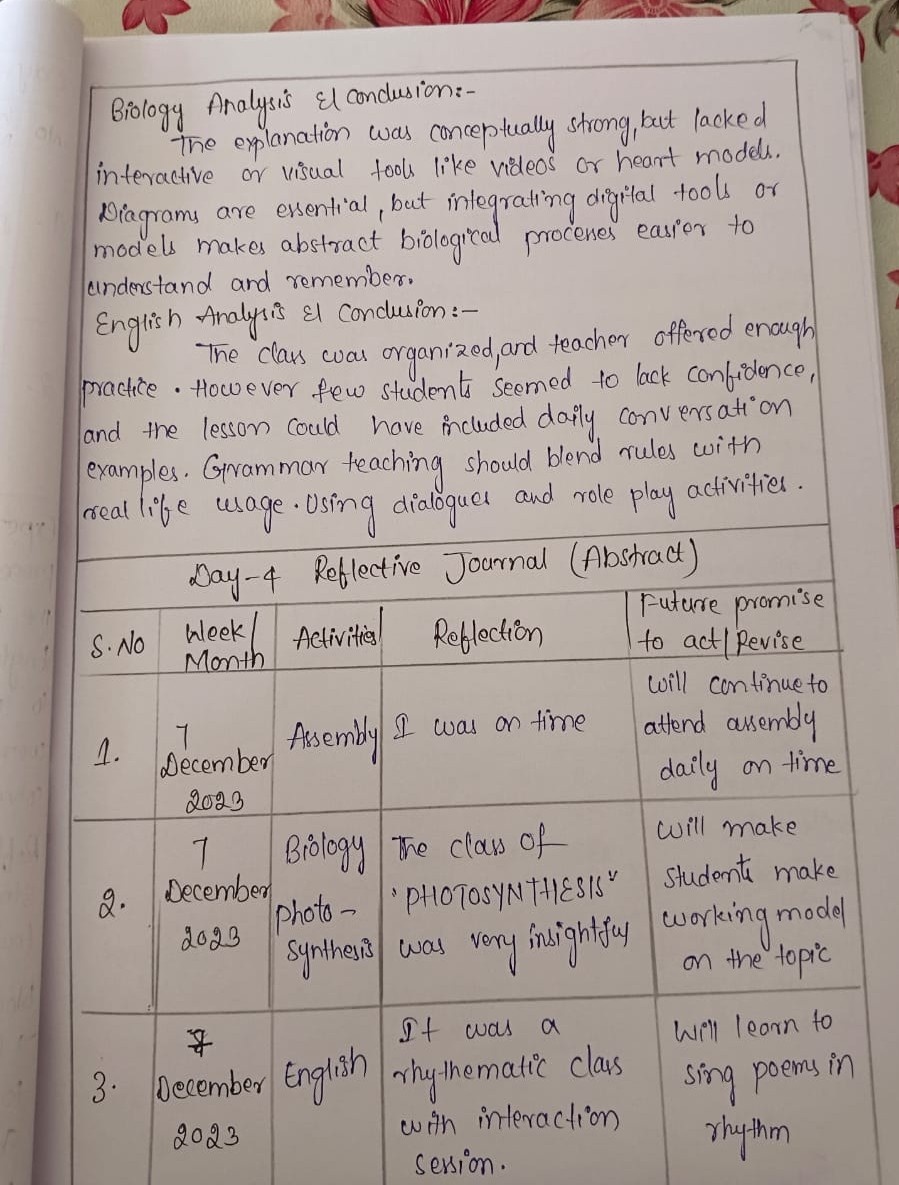 Biology Analysis & Conclusion:-
The explanation was conceptually strong, but lacked
interactive or visual tools like videos or heart models.
Diagrams are essential, but integrating digital tools or
models makes abstract biological processes easier to
understand and remember.
English Analysis & Conclusion:-
The class was organized, and teacher offered enough
practice. However few students seemed to lack confidence,
and the lesson could have included daily conversation
examples. Grammar teaching should blend rules with
real life usage. Using dialogues and role play activities.
Day-4 Reflective Journal (Abstract)
S.No Week/ Month Activities Reflection Future promise to act/Revise
1. 7 December 2023 Assembly I was on time will continue to attend assembly daily on time
2. 7 December 2023 Biology photo-synthesis The class of 'PHOTOSYNTHESIS" was very insightful will make students make working model on the topic
3. 7 December 2023 English It was a rhythematic class with interaction session. Will learn to sing poems in rhythm